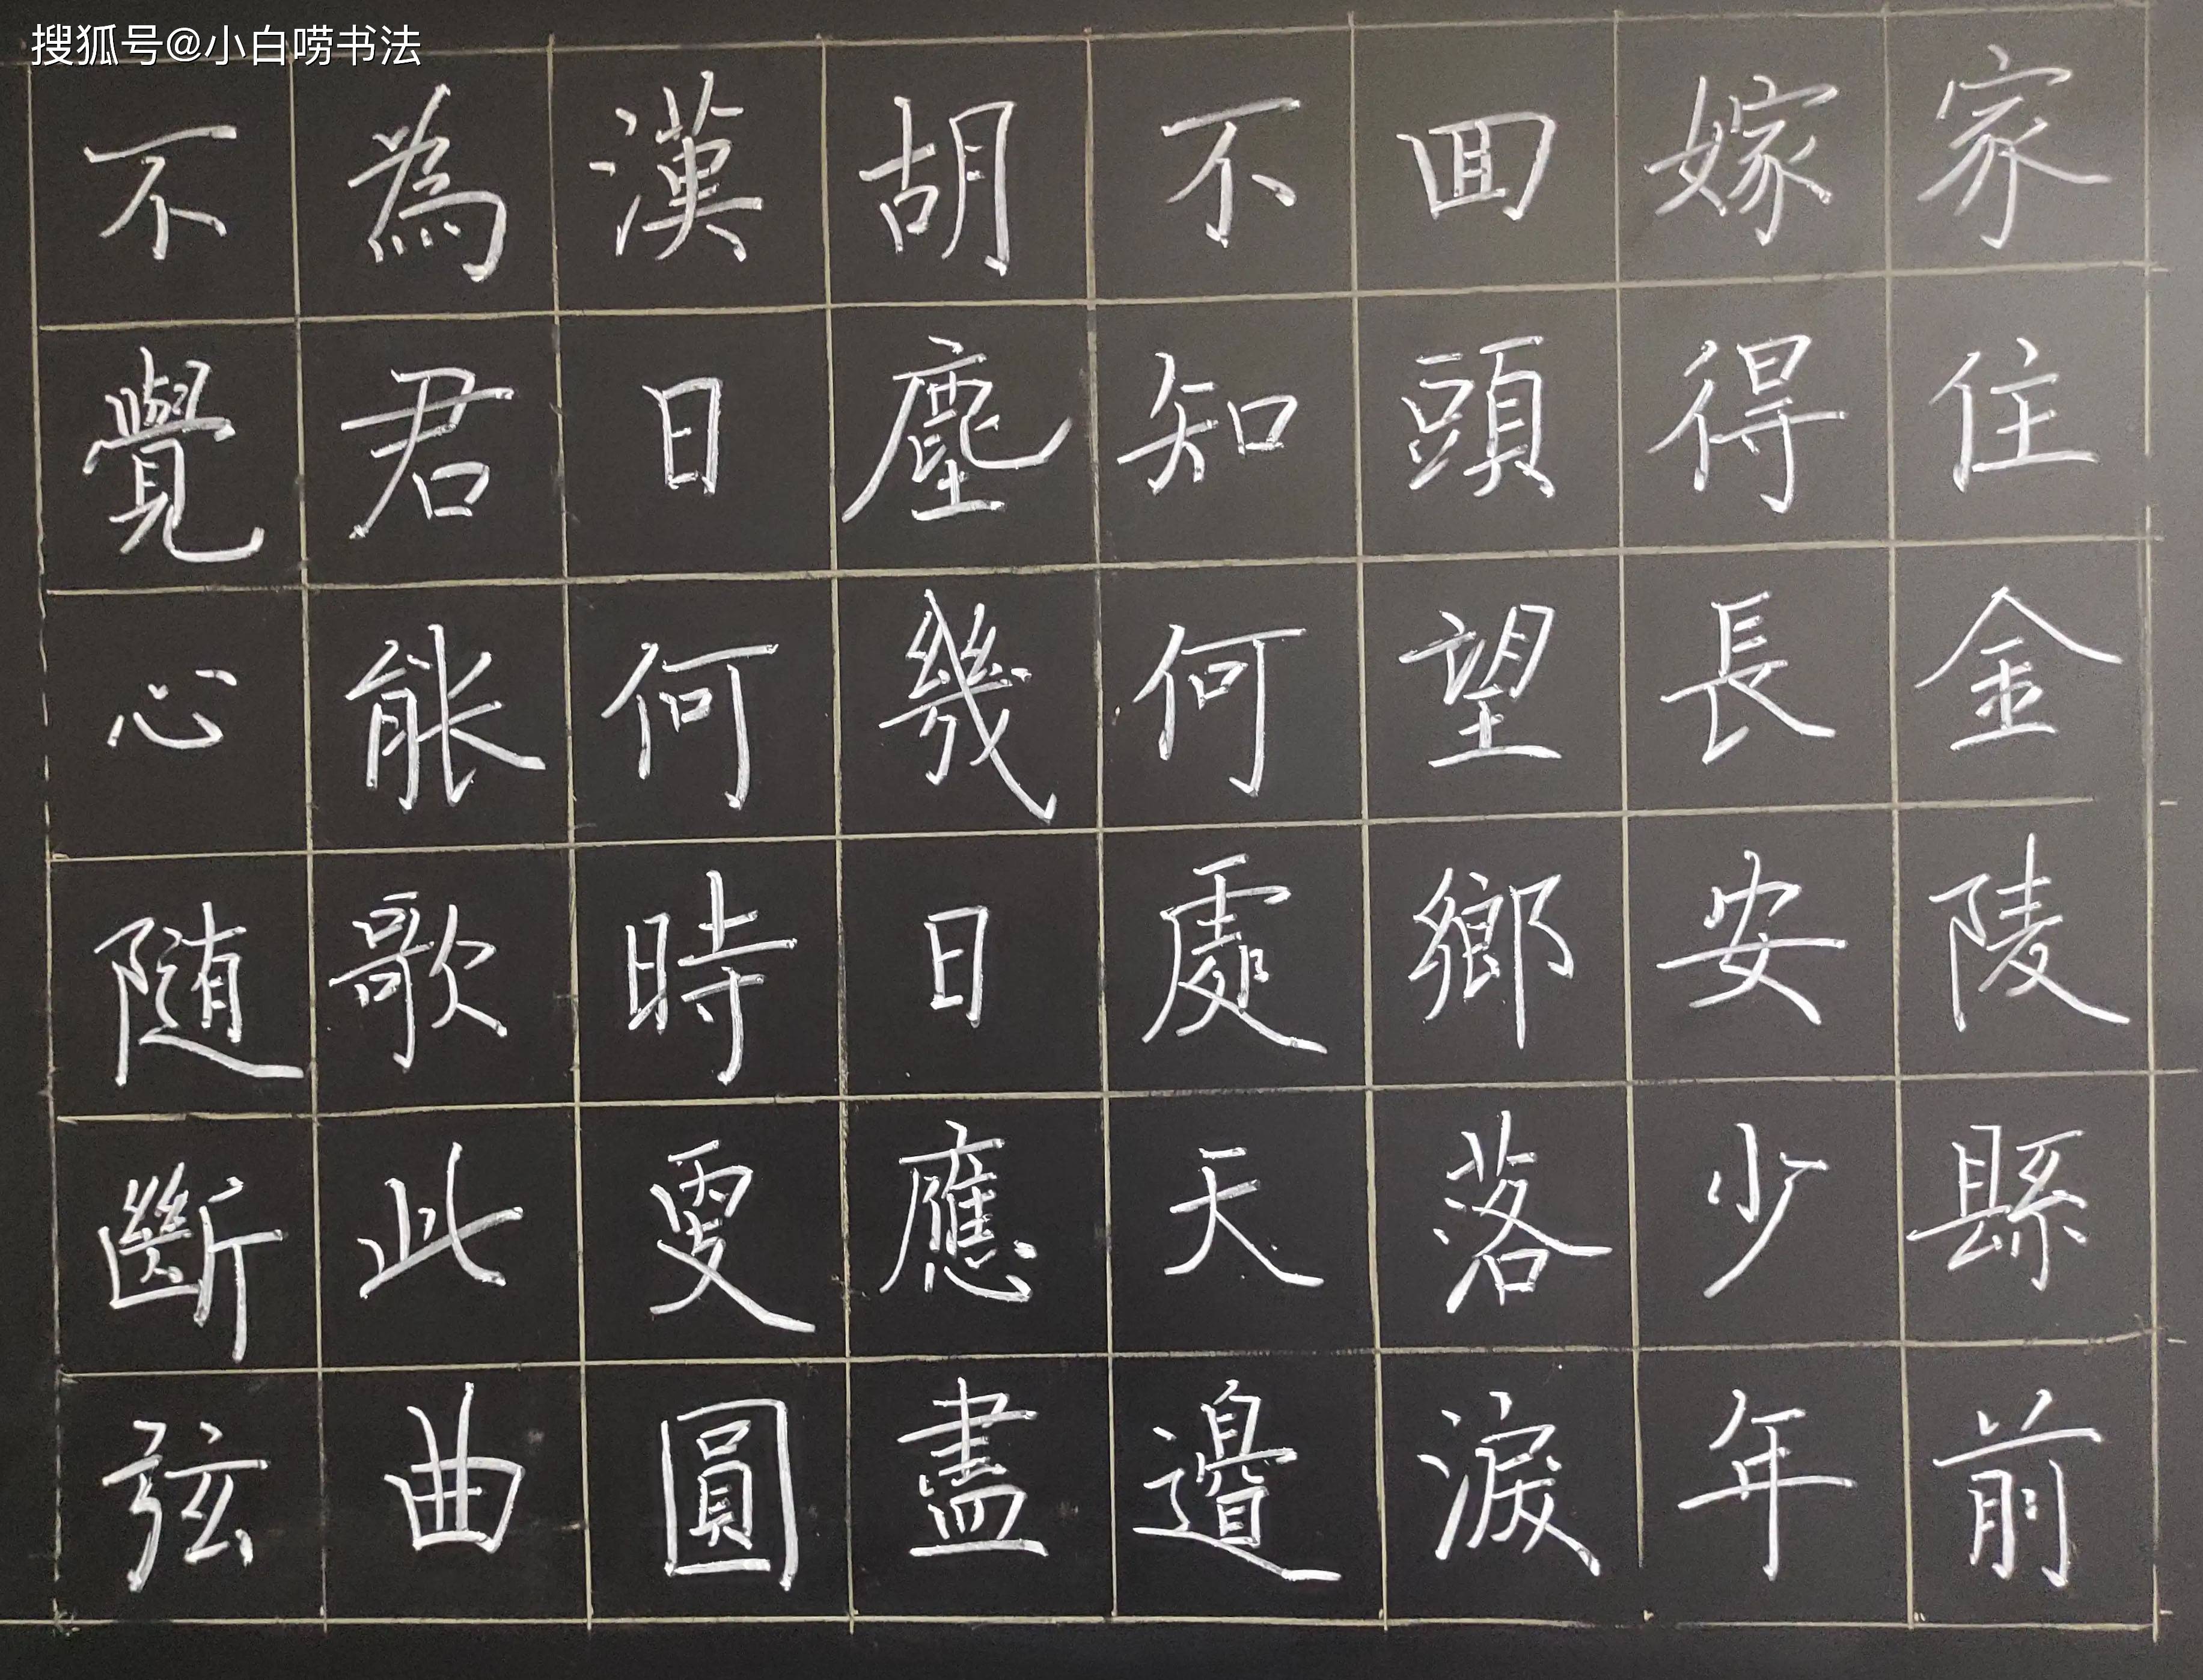 搜狐号@小白唠书法
家住金陵縣前
嫁得長安少年
回頭望鄉落淚
不知何處天邊
胡塵幾日應盡
漢日何時更圓
為君能歌此曲
不覺心随斷弦